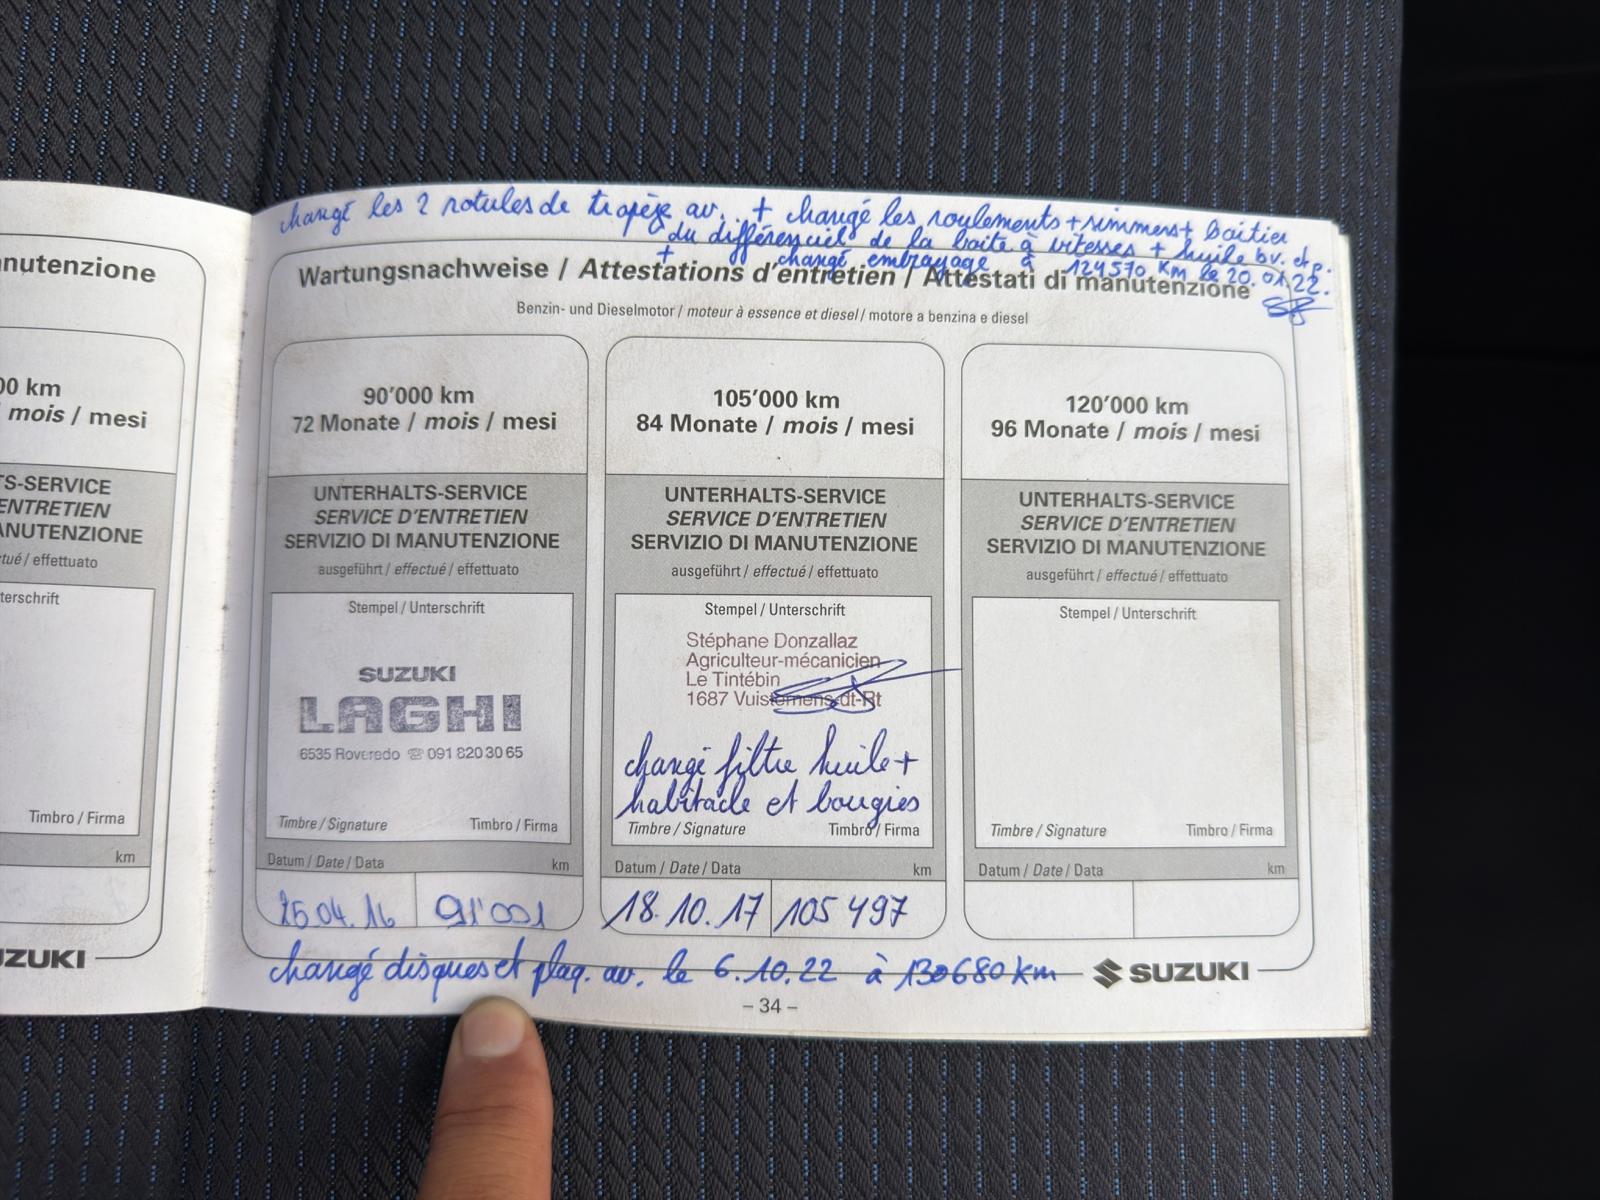 changé les 2 rotules de trapèze av. + changé les roulements + simmers + boitier
du différenciel de la boite à vitesses + huile bv. et p.
+ changé embrayage à 124570 km le 20.01.22.
Wartungsnachweise / Attestations d'entretien / Attestati di manutenzione
Benzin- und Dieselmotor / moteur à essence et diesel / motore a benzina e diesel
nutenzione
00 km
mois / mesi
TS-SERVICE
ENTRETIEN
ANUTENZIONE
tué / effettuato
terschrift
Timbro / Firma
km
UZUKI
90'000 km
72 Monate / mois / mesi
UNTERHALTS-SERVICE
SERVICE D'ENTRETIEN
SERVIZIO DI MANUTENZIONE
ausgeführt / effectué / effettuato
Stempel / Unterschrift
SUZUKI
LAGHI
6535 Roveredo ☎ 091 820 30 65
Timbre / Signature Timbro / Firma
Datum / Date / Data km
25.04.16 91'001
105'000 km
84 Monate / mois / mesi
UNTERHALTS-SERVICE
SERVICE D'ENTRETIEN
SERVIZIO DI MANUTENZIONE
ausgeführt / effectué / effettuato
Stempel / Unterschrift
Stéphane Donzallaz
Agriculteur-mécanicien
Le Tintébin
1687 Vuisternens-dt-Rt
changé filtre huile +
habitacle et bougies
Timbre / Signature Timbro / Firma
Datum / Date / Data km
18.10.17 105 497
120'000 km
96 Monate / mois / mesi
UNTERHALTS-SERVICE
SERVICE D'ENTRETIEN
SERVIZIO DI MANUTENZIONE
ausgeführt / effectué / effettuato
Stempel / Unterschrift
Timbre / Signature Timbro / Firma
Datum / Date / Data km
changé disques et plaq. av. le 6.10.22 à 130680 km
SUZUKI
– 34 –